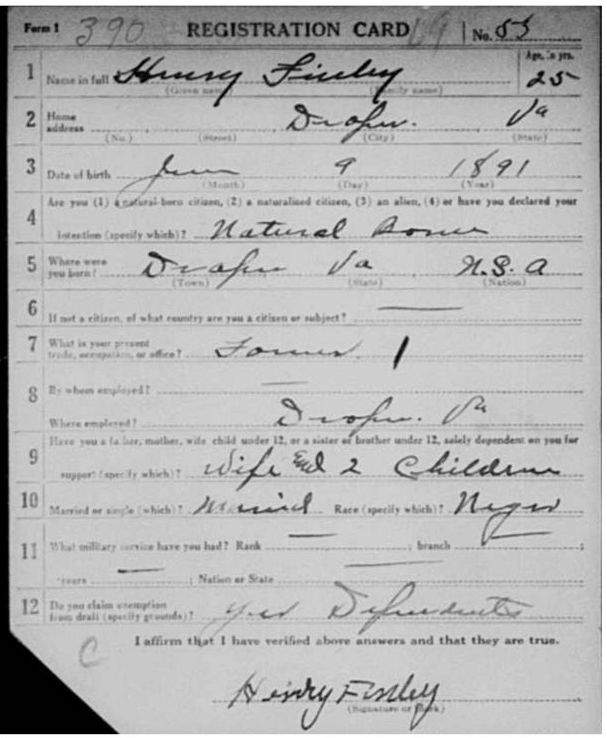 Form 1 390 REGISTRATION CARD 69 No. 53
1 Name in full Henry Finley Age, in yrs. 25
(Given name) (Family name)
2 Home address Draper. Va
(No.) (Street) (City) (State)
3 Date of birth June 9 1891
(Month) (Day) (Year)
Are you (1) a natural-born citizen, (2) a naturalized citizen, (3) an alien, (4) or have you declared your
4 intention (specify which)? Natural Borne
5 Where were you born? Draper Va U.S.A
(Town) (State) (Nation)
6 If not a citizen, of what country are you a citizen or subject? —
7 What is your present trade, occupation, or office? Farmer 1
8 By whom employed? —
Where employed? Draper. Va
Have you a father, mother, wife child under 12, or a sister or brother under 12, solely dependent on you for
9 support (specify which)? Wife and 2 Children
10 Married or single (which)? Married Race (specify which)? Negro
11 What military service have you had? Rank — ; branch — ;
years — ; Nation or State —
12 Do you claim exemption from draft (specify grounds)? yes Dependents
I affirm that I have verified above answers and that they are true.
C
Henry Finley
(Signature or mark)